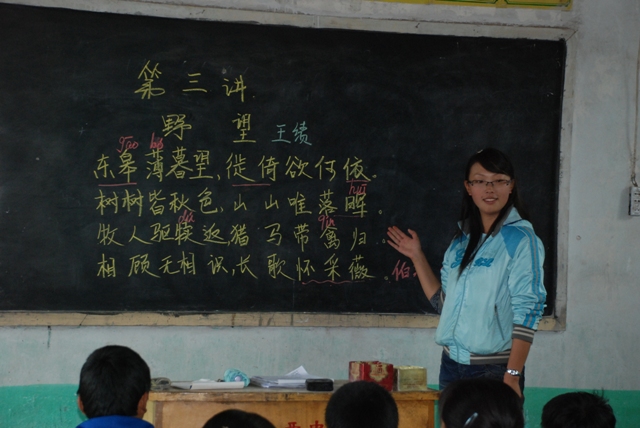 第三讲
野望 王绩
东皋薄暮望,徙倚欲何依。
树树皆秋色,山山唯落晖。
牧人驱犊返,猎马带禽归
相顾无相识,长歌怀采薇。伯